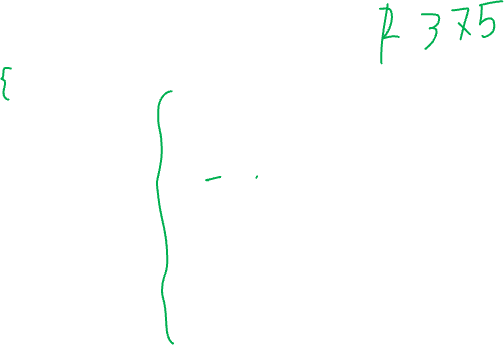 P 375
{
{ - .